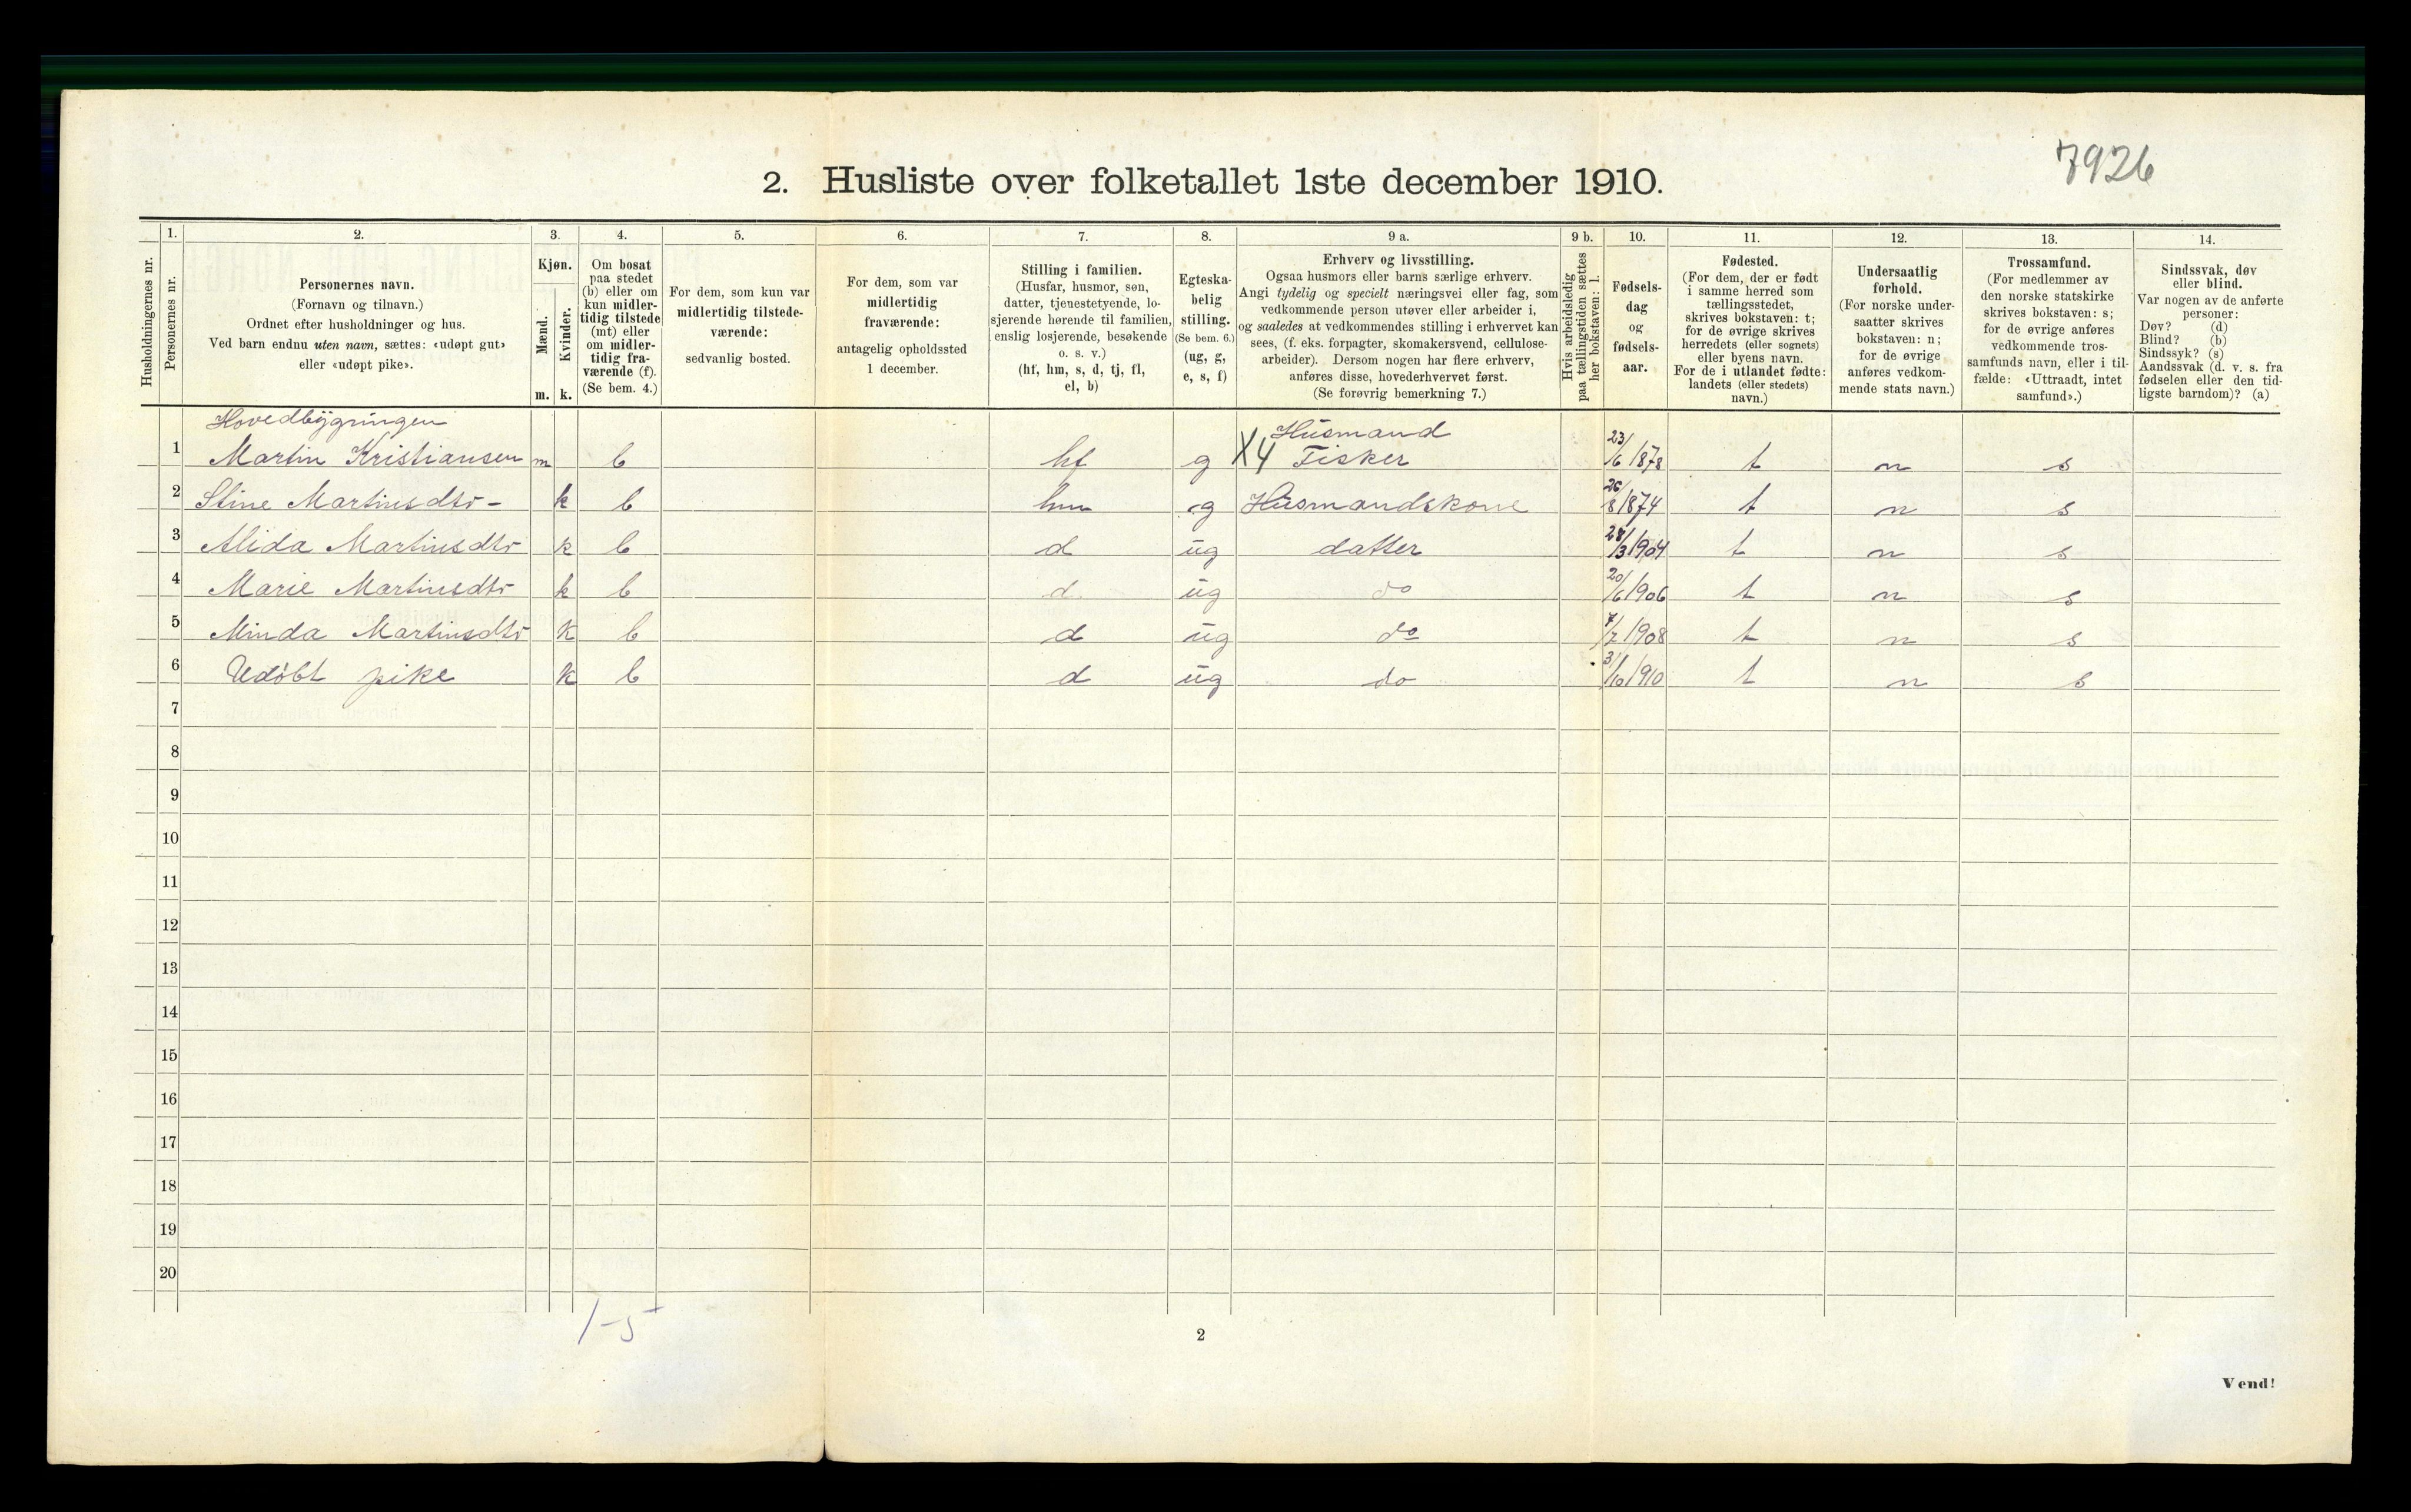 7926
2. Husliste over folketallet 1ste december 1910.
Husholdningernes nr.
1.
Personernes nr.
2.
Personernes navn.
(Fornavn og tilnavn.)
Ordnet efter husholdninger og hus.
Ved barn endnu uten navn, sættes: «udøpt gut»
eller «udøpt pike».
3.
Kjøn.
Mænd.
m.
Kvinder.
k.
4.
Om bosat
paa stedet
(b) eller om
kun midler-
tidig tilstede
(mt) eller
om midler-
tidig fra-
værende (f).
(Se bem. 4.)
5.
For dem, som kun var
midlertidig tilstede-
værende:
sedvanlig bosted.
6.
For dem, som var
midlertidig
fraværende:
antagelig opholdssted
1 december.
7.
Stilling i familien.
(Husfar, husmor, søn,
datter, tjenestetyende, lo-
sjerende hørende til familien,
enslig losjerende, besøkende
o. s. v.)
(hf, hm, s, d, tj, fl,
el, b)
8.
Egteska-
belig
stilling.
(Se bem. 6.)
(ug, g,
e, s, f)
9 a.
Erhverv og livsstilling.
Ogsaa husmors eller barns særlige erhverv.
Angi tydelig og specielt næringsvei eller fag, som
vedkommende person utøver eller arbeider i,
og saaledes at vedkommendes stilling i erhvervet kan
sees, (f. eks. forpagter, skomakersvend, cellulose-
arbeider). Dersom nogen har flere erhverv,
anføres disse, hovederhvervet først.
(Se forøvrig bemerkning 7.)
9 b.
Hvis arbeidsledig
paa tællingstiden sættes
her bokstaven: l.
10.
Fødsels-
dag
og
fødsels-
aar.
11.
Fødested.
(For dem, der er født
i samme herred som
tællingsstedet,
skrives bokstaven: t;
for de øvrige skrives
herredets (eller sognets)
eller byens navn.
For de i utlandet fødte:
landets (eller stedets)
navn.)
12.
Undersaatlig
forhold.
(For norske under-
saatter skrives
bokstaven: n;
for de øvrige
anføres vedkom-
mende stats navn.)
13.
Trossamfund.
(For medlemmer av
den norske statskirke
skrives bokstaven: s;
for de øvrige anføres
vedkommende tros-
samfunds navn, eller i til-
fælde: «Uttraadt, intet
samfund».)
14.
Sindssvak, døv
eller blind.
Var nogen av de anførte
personer:
Døv? (d)
Blind? (b)
Sindssyk? (s)
Aandssvak (d. v. s. fra
fødselen eller den tid-
ligste barndom)? (a)
Hovedbygningen Husmand
1 Martin Kristiansen m b hf g X4 Fisker 23/6 1878 t n s
2 Stine Martinsdtr- k b hm g Husmandskone 26/8 1874 t n s
3 Alida Martinsdtr k b d ug datter 28/3 1904 t n s
4 Marie Martinsdtr k b d. ug do 20/6 1906 t n s
5 Minda Martinsdtr k b d ug do 7/2 1908 t n s
6 Udöbt pike k b d ug do 3/10 1910 t n s
7
8
9
10
11
12
13
14
15
16
17
18
19
20
1-5
2
Vend!